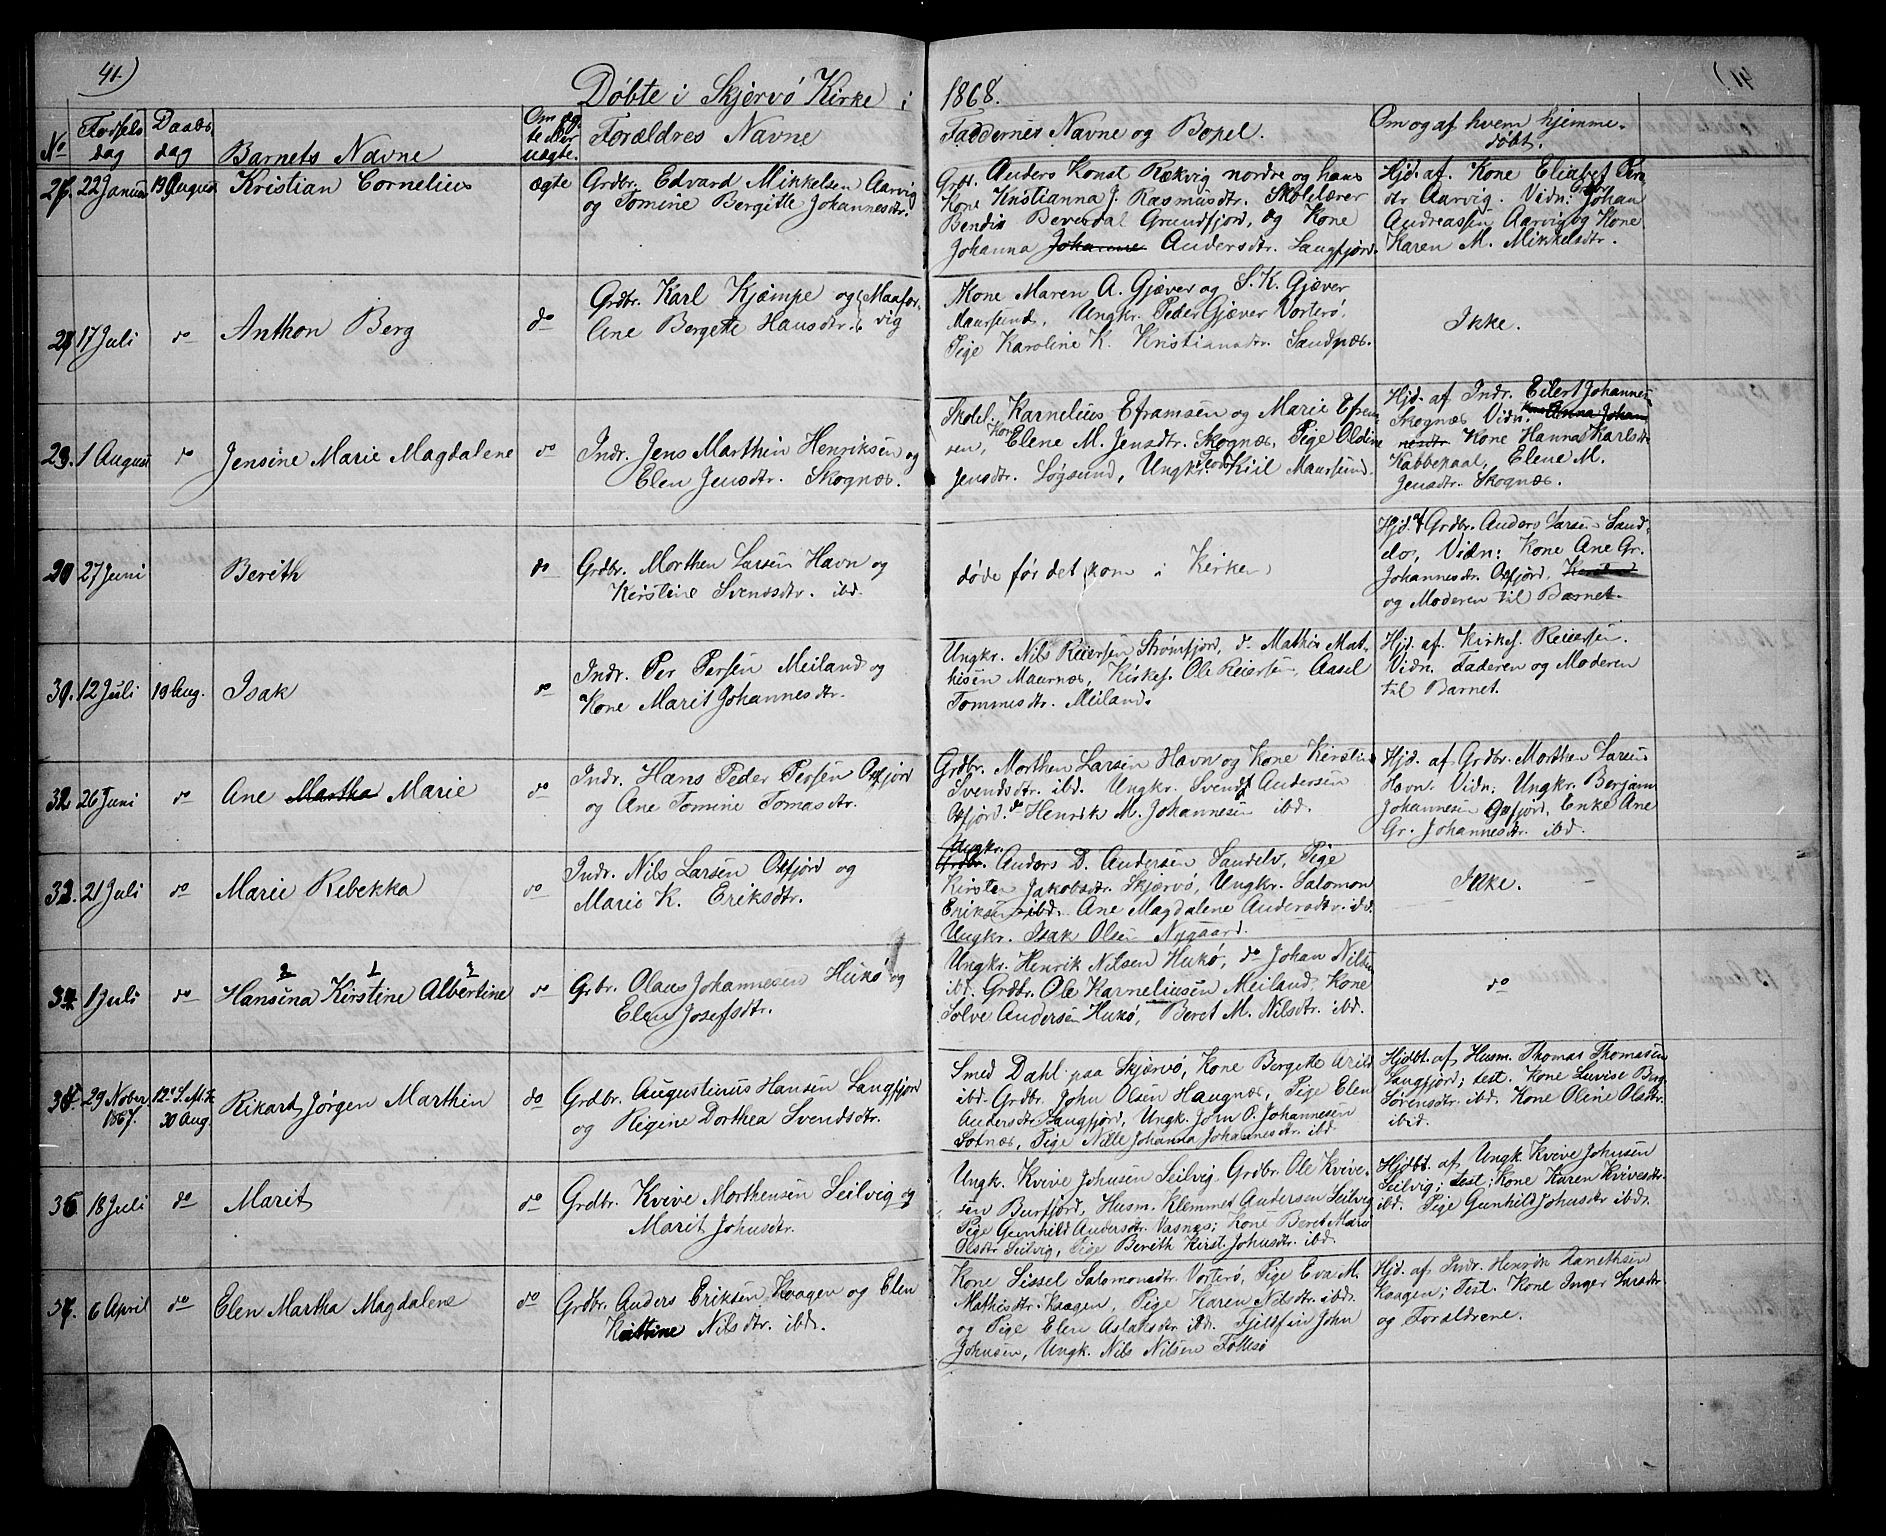 41.)
Døbte i Skjervö Kirke i 1868.
No
Fødsels
dag
Daabs
dag
Barnets Navne
Om æg
te eller
uægte.
Forældres Navne
Faddernes Navne og Bopel.
Om og af hvem hjemme-
døbt.
22 Januar
19 August
Kristian Cornelius
ægte
Grdbr. Edvard Mikkelsen Aarvig
og Tomine Bergitte Johannesdtr.
Grdbr. Anders Konst Rækvig nordre og hans
Kone Kristianna J. Rasmusdtr. Skolelærer
Bendix Beverdal Grundfjord, og Kone
Johanna Johanne Andersdtr. Langfjord.
Hjd. af. Kone Elisabet Per
dtr Aarvig. Vidn: Grdbr Johan
Andreassen Aarvig og Kone
Karen M. Mikkelsdtr.
17 Juli
do
Anthon Berg
do
Grdbr. Karl Kjæmpe og
Ane Bergette Hansdtr.
Maafor-
vig
Kone Maren A. Gjæver og S. K. Gjæver
Maursund, Ungkr. Peder Gjæver Vorterö,
Pige Karoline K. Kristiansdtr. Sandnæs.
Ikke.
29. 1 August
do
Jensine Marie Magdalene
do
Indr. Jens Marthin Henriksen og
Elen Jensdtr. Skognæs.
Skolel. Karnelius Eframsen og Marie Efram
sen, Kone Elene M. Jensdtr. Skognæs, Pige Oldine
Jensdtr. Løgsund, Ungkr. Kiil Maursund.
Hjd. af Indr. Eilert Johannes
Skognæs Vidn. Kone Anna Johan
nesdtr Kone Hanna Karlsdtr
Kabbepaal, Elene M.
Jensdtr. Skognæs.
27 Juni
Berith
do
Grdbr. Morthen Larsen Havn og
Kirstine Svendsdtr. ibd.
døde før det kom i Kirken
Hjd. af Grdbr. Anders Larsen Sand-
elv, Vidn: Kone Ane Gr.
Johannesdtr. Oxfjord,
og Moderen til Barnet.
12 Juli
19 Aug.
Isak
do
Indr. Per Persen Meiland og
Kone Marit Johannesdtr.
Ungkr. Nils Reiersen Strømfjord, do Mathis Mat-
hisen Maurnæs, Kirkes. Ole Reiersen, Aasel
Tommesdtr. Meiland.
Hjd. af. Kirkes. Reiersen.
Vidn. Faderen og Moderen
til Barnet.
32. 26 Juni
do
Ane Martha Marie
do
Indr. Hans Peder Persen Oxfjord
og Ane Tomine Tomasdtr.
Grdbr. Morthen Larsen Havn og Kone Kirstine
Svendsdtr. ibd. Ungkr. Svend Andersen
Oxfjord. do Henrik M. Johannesen ibd.
Hjd. af Grdbr. Morthen Larsen
Havn. Vidn: Ungkr. Benjam
Johannesen Oxfjord, Enke Ane
Gr. Johannesdtr. ibd.
33. 21 Juli
do
Marie Rebekka
do
Indr. Nils Larsen Oxfjord og
Marie K. Eriksdtr.
Ungkr.
Grdbr. Anders D. Andersen Sandelv, Pige
Kirsten Jakobsdtr. Skjærvö, Ungkr. Salomon
Eriksen ibd. Ane Magdalene Andersdtr. ibd.
Ungkr. Isak Olsen Nygaard.
Ikke.
34. 1 Juli
do
Hansina Kirstine Albertine
do
Grbr. Olaus Johannesen Hukö og
Elen Josefsdtr.
Ungkr. Henrik Nilsen Hukö, do Johan Nilsen
ibd. Grdbr. Ole Karneliusen Meiland, Kone
Solve Andersen Hukö, Beret M. Nilsdtr. ibd.
do
35. 29 Nober.
1867.
12te S. M. Tr.
30 Aug.
Rikart Jørgen Marthin
do
Grdbr. Augustinus Hansen Langfjord
og Regine Dorthea Svendsdtr.
Smed Dahl paa Skjervö, Kone Bergette
ibd. Grdbr. John Olsen Haugnæs, Pige Elen
Andersdtr Langfjord, Ungk. John O. Johannesen
Sotnæs, Pige Nille Johanna Johannesdtr. ibd.
Hjdbt. af Husm. Thomas Thomasen
Langfjord; test. Kone Luvise Berg
Sørensdtr. ibd. Kone Oline Olsdtr.
ibid.
36 18 Juli
do
Marit
do
Grdbr. Kvive Morthensen Seilvig og
Marit Johnsdtr.
Ungk. Kvive Johnsen Seilvig. Grdbr. Ole Kvive-
sen Burfjord, Husm. Klemmet Andersen Seilvig
Pige Gunhild Andersdtr. Vasnæs; Kone Beret Marie
Olsdtr Seilvig, Pige Berith Kirst. Johnsdtr. ibd.
Hjdbt. af Ungk. Kvive Johnsen
Seilvig; Test: Kone Karen Kvivesdtr.
ibd. Pige Gunhild Johnsdtr ibd.
37. 6 April
do
Elen Martha Magdalene
do
Grdbr. Anders Eriksen Kaagen og Elen
Kattrine Nilsdtr. ibd.
Kone Sissel Salomonsdtr. Vorterö, Pige Eva M.
Mathisdtr. Kaagen, Pige Karen Nilsdtr. ibd.
og Pige Elen Aslaksdtr ibd. John
Johnsen, Ungk. Nils Nilsen Follesö
Hjd. af Indr. Henrik Zanithsen
Kaagen; Test. Kone Inger Larsdtr.
og Forældrene.